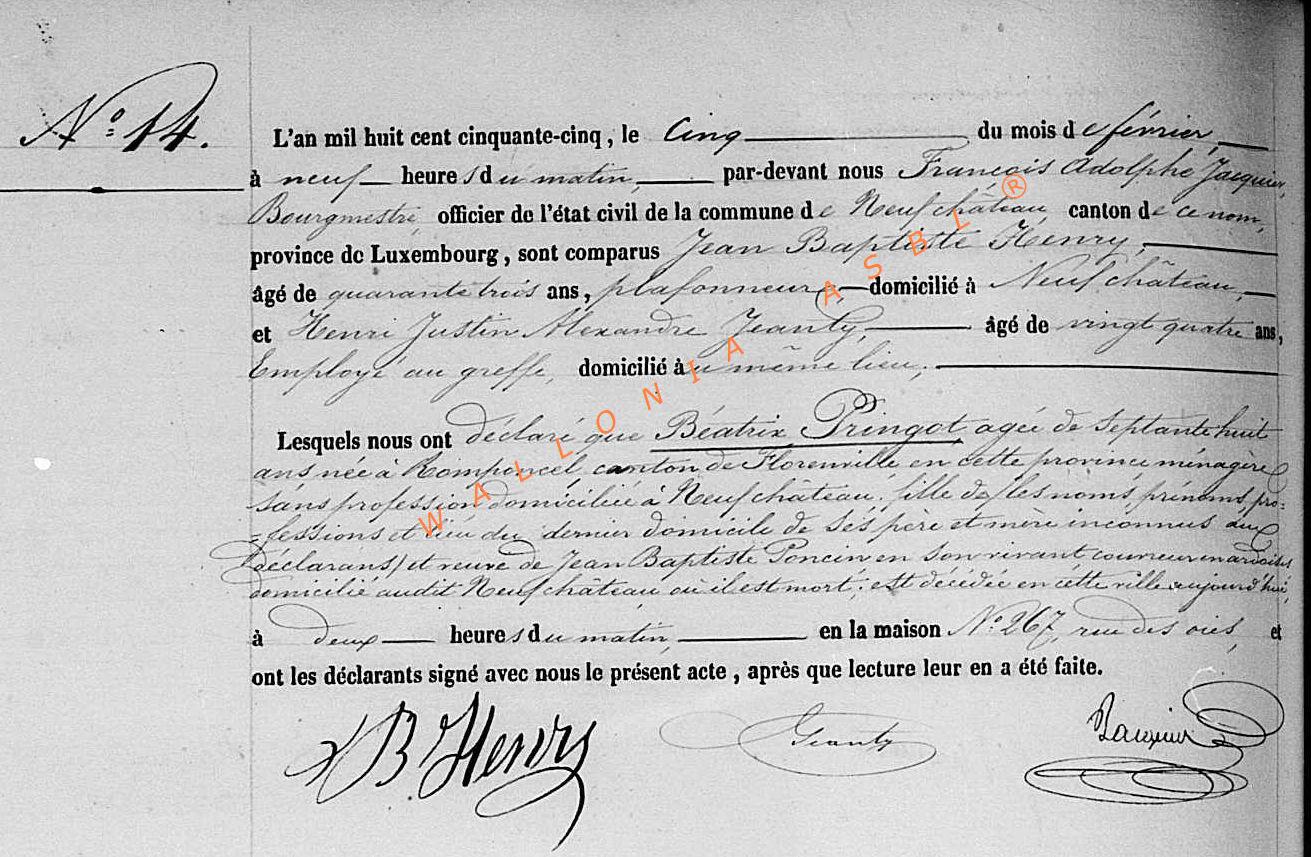 N° 14.
L'an mil huit cent cinquante-cinq, le Cinq du mois de février,
à neuf heures du matin, par-devant nous François Adolphe Jacquier,
Bourgmestre, officier de l'état civil de la commune de Neufchâteau, canton de ce nom,
province de Luxembourg, sont comparus Jean Baptiste Henry,
âgé de quarante trois ans, plafonneur, domicilié à Neufchâteau,
et Henri Justin Alexandre Jeanty, âgé de vingt quatre ans,
Employé au greffe, domicilié au même lieu;
Lesquels nous ont déclaré que Béatrix Pringot agée de septante huit
ans née à Romponcel, canton de Florenville en cette province ménagère
sans profession domiciliée à Neufchâteau, fille de (les noms, prenoms, pro-
-fessions et lieu du dernier domicile de ses père et mère inconnus aux
déclarans) et veuve de Jean Baptiste Poncin en son vivant couvreur en ardoises
domicilié audit Neufchâteau où il est mort; est décédée en cette ville aujourd'hui,
à deux heures du matin, en la maison N° 267, rue des oies, et
ont les déclarants signé avec nous le présent acte, après que lecture leur en a été faite.
JB Henry Jeanty Jacquier
WALLONIA ASBL ®